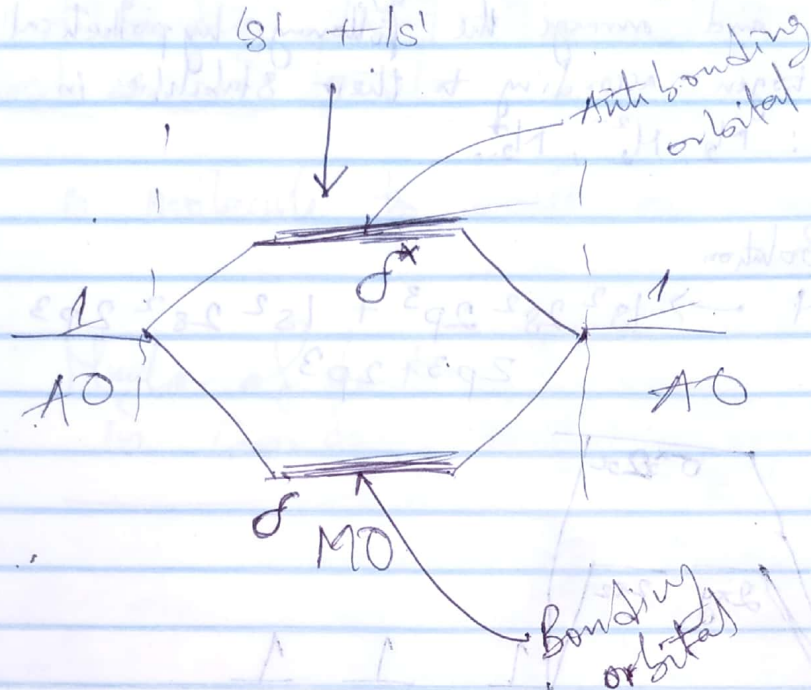 1s¹ + 1s¹
Anti bonding
orbital
σ*
1
1
AO
AO
σ
MO
Bonding
orbital